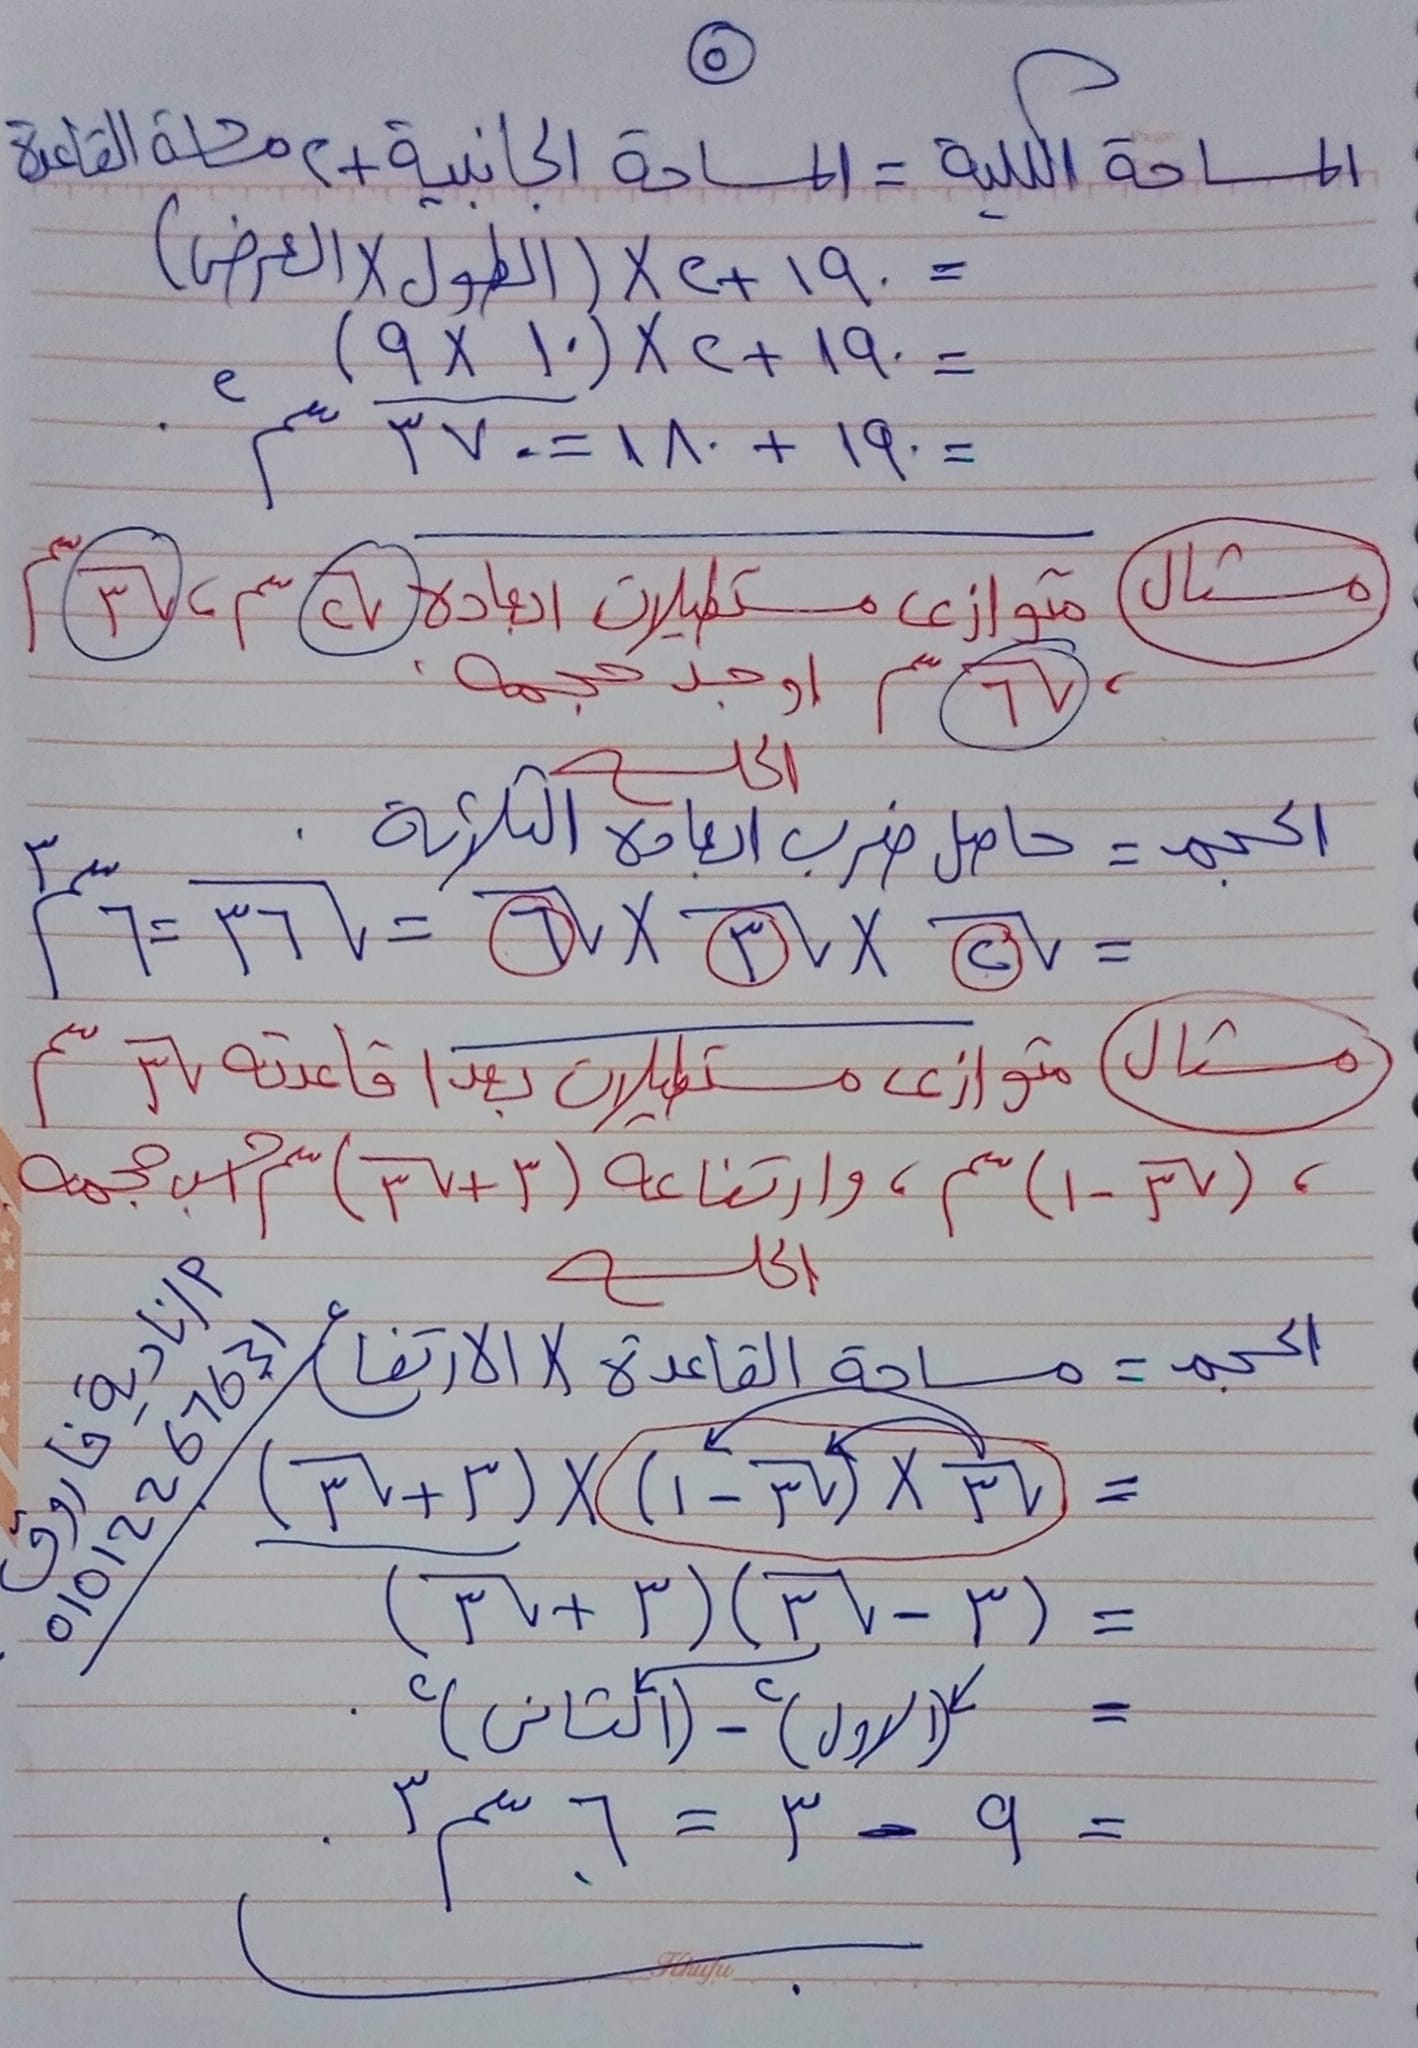 ٥
المساحة الكلية = المساحة الجانبية + ٢ مساحة القاعدة
= ١٩٠ + ٢ × (الطول × العرض)
= ١٩٠ + ٢ × (١٠ × ٩)
= ١٩٠ + ١٨٠ = ٣٧٠ سم٢
مثال متوازى مستطيلات ابعاده √٢ سم ، √٣ سم
، √٦ سم اوجد حجمه .
الحل
الحجم = حاصل ضرب ابعاده الثلاثة .
= √٢ × √٣ × √٦ = √٣٦ = ٦ سم٣
مثال متوازى مستطيلات بعدا قاعدته √٣ سم
، (√٣ - ١) سم ، وارتفاعه (٣ + √٣) سم احسب حجمه .
الحل
الحجم = مساحة القاعدة × الارتفاع
= √٣ × (√٣ - ١) × (٣ + √٣)
= (٣ - √٣) (٣ + √٣)
= (الاول)٢ - (الثانى)٢ .
= ٩ - ٣ = ٦ سم٣ .
م/نادية فاروق
01012267631
Khufu